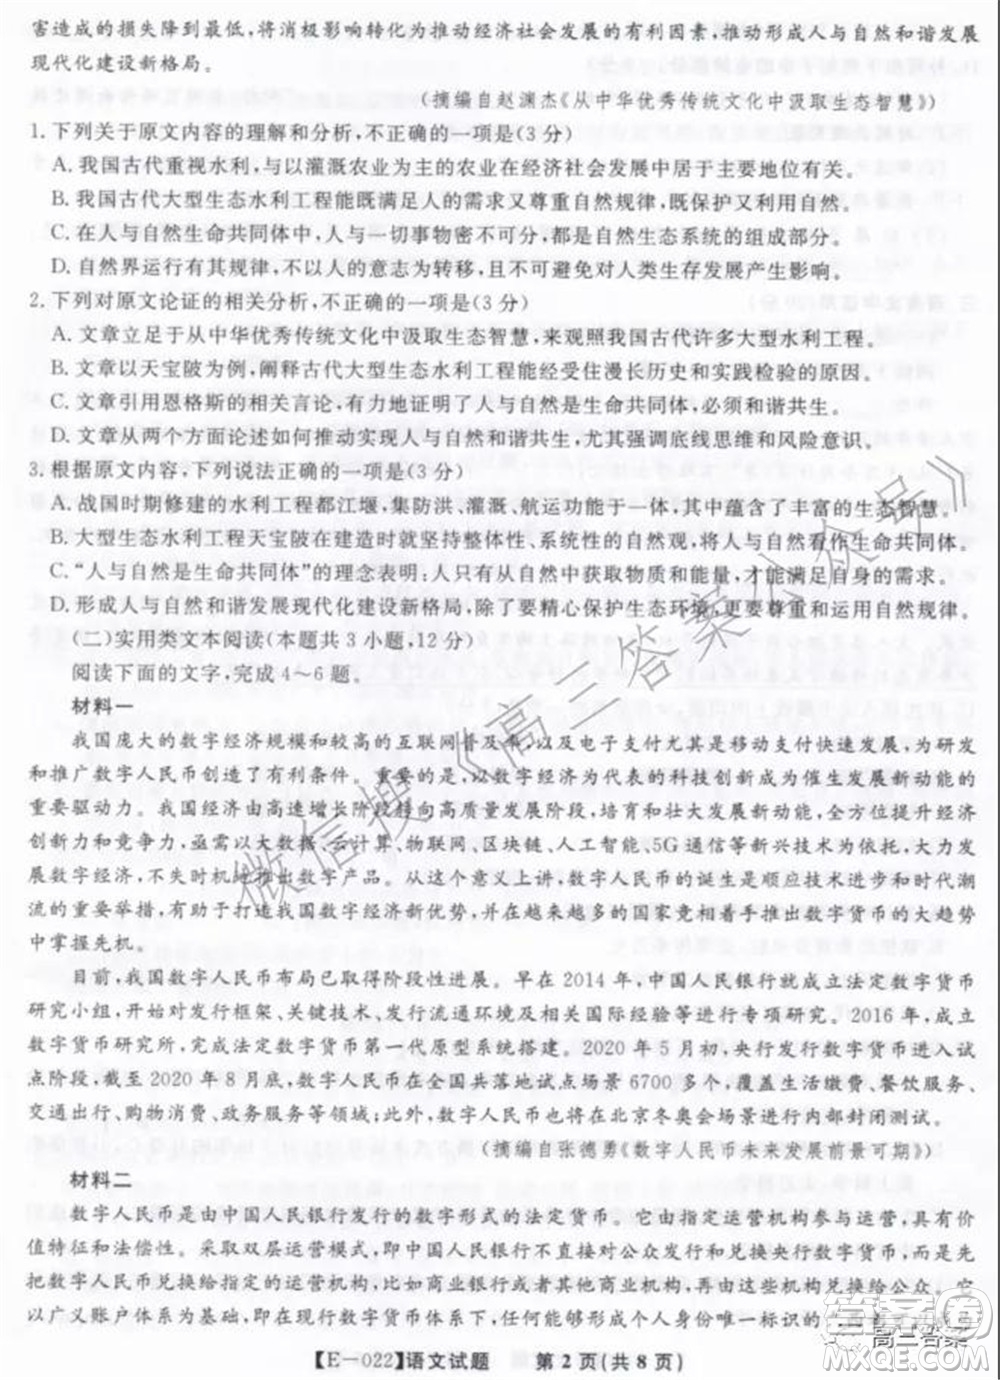 害造成的损失降到最低,将消极影响转化为推动经济社会发展的有利因素,推动形成人与自然和谐发展
现代化建设新格局。
(摘编自赵渊杰《从中华优秀传统文化中汲取生态智慧》)
1.下列关于原文内容的理解和分析,不正确的一项是(3分)
A.我国古代重视水利,与以灌溉农业为主的农业在经济社会发展中居于主要地位有关。
B.我国古代大型生态水利工程能既满足人的需求又尊重自然规律,既保护又利用自然。
C.在人与自然生命共同体中,人与一切事物密不可分,都是自然生态系统的组成部分。
D.自然界运行有其规律,不以人的意志为转移,且不可避免对人类生存发展产生影响。
2.下列对原文论证的相关分析,不正确的一项是(3分)
A.文章立足于从中华优秀传统文化中汲取生态智慧,来观照我国古代许多大型水利工程。
B.文章以天宝陂为例,阐释古代大型生态水利工程能经受住漫长历史和实践检验的原因。
C.文章引用恩格斯的相关言论,有力地证明了人与自然是生命共同体,必须和谐共生。
D.文章从两个方面论述如何推动实现人与自然和谐共生,尤其强调底线思维和风险意识。
3.根据原文内容,下列说法正确的一项是(3分)
A.战国时期修建的水利工程都江堰,集防洪、灌溉、航运功能于一体,其中蕴含了丰富的生态智慧。
B.大型生态水利工程天宝陂在建造时就坚持整体性、系统性的自然观,将人与自然看作生命共同体。
C.“人与自然是生命共同体”的理念表明:人只有从自然中获取物质和能量,才能满足自身的需求。
D.形成人与自然和谐发展现代化建设新格局,除了要精心保护生态环境,更要尊重和运用自然规律。
(二)实用类文本阅读(本题共3小题,12分)
阅读下面的文字,完成4~6题。
材料一
我国庞大的数字经济规模和较高的互联网普及率,以及电子支付尤其是移动支付快速发展,为研发
和推广数字人民币创造了有利条件。重要的是,以数字经济为代表的科技创新成为催生发展新动能的
重要驱动力。我国经济由高速增长阶段转向高质量发展阶段,培育和壮大发展新动能,全方位提升经济
创新力和竞争力,亟需以大数据、云计算、物联网、区块链、人工智能、5G通信等新兴技术为依托,大力发
展数字经济,不失时机地推出数字产品。从这个意义上讲,数字人民币的诞生是顺应技术进步和时代潮
流的重要举措,有助于打造我国数字经济新优势,并在越来越多的国家竞相着手推出数字货币的大趋势
中掌握先机。
目前,我国数字人民币布局已取得阶段性进展。早在2014年,中国人民银行就成立法定数字货币
研究小组,开始对发行框架、关键技术、发行流通环境及相关国际经验等进行专项研究。2016年,成立
数字货币研究所,完成法定数字货币第一代原型系统搭建。2020年5月初,央行发行数字货币进入试
点阶段,截至2020年8月底,数字人民币在全国共落地试点场景6700多个,覆盖生活缴费、餐饮服务、
交通出行、购物消费、政务服务等领域;此外,数字人民币也将在北京冬奥会场景进行内部封闭测试。
(摘编自张德勇《数字人民币未来发展前景可期》)
材料二
数字人民币是由中国人民银行发行的数字形式的法定货币。它由指定运营机构参与运营,具有价
值特征和法偿性。采取双层运营模式,即中国人民银行不直接对公众发行和兑换央行数字货币,而是先
把数字人民币兑换给指定的运营机构,比如商业银行或者其他商业机构,再由这些机构兑换给公众。它
以广义账户体系为基础,即在现行数字货币体系下,任何能够形成个人身份唯一标识的
【E—022】语文试题 第2页(共8页)
微信搜《高三答案公众号》
答案圈
高三答案